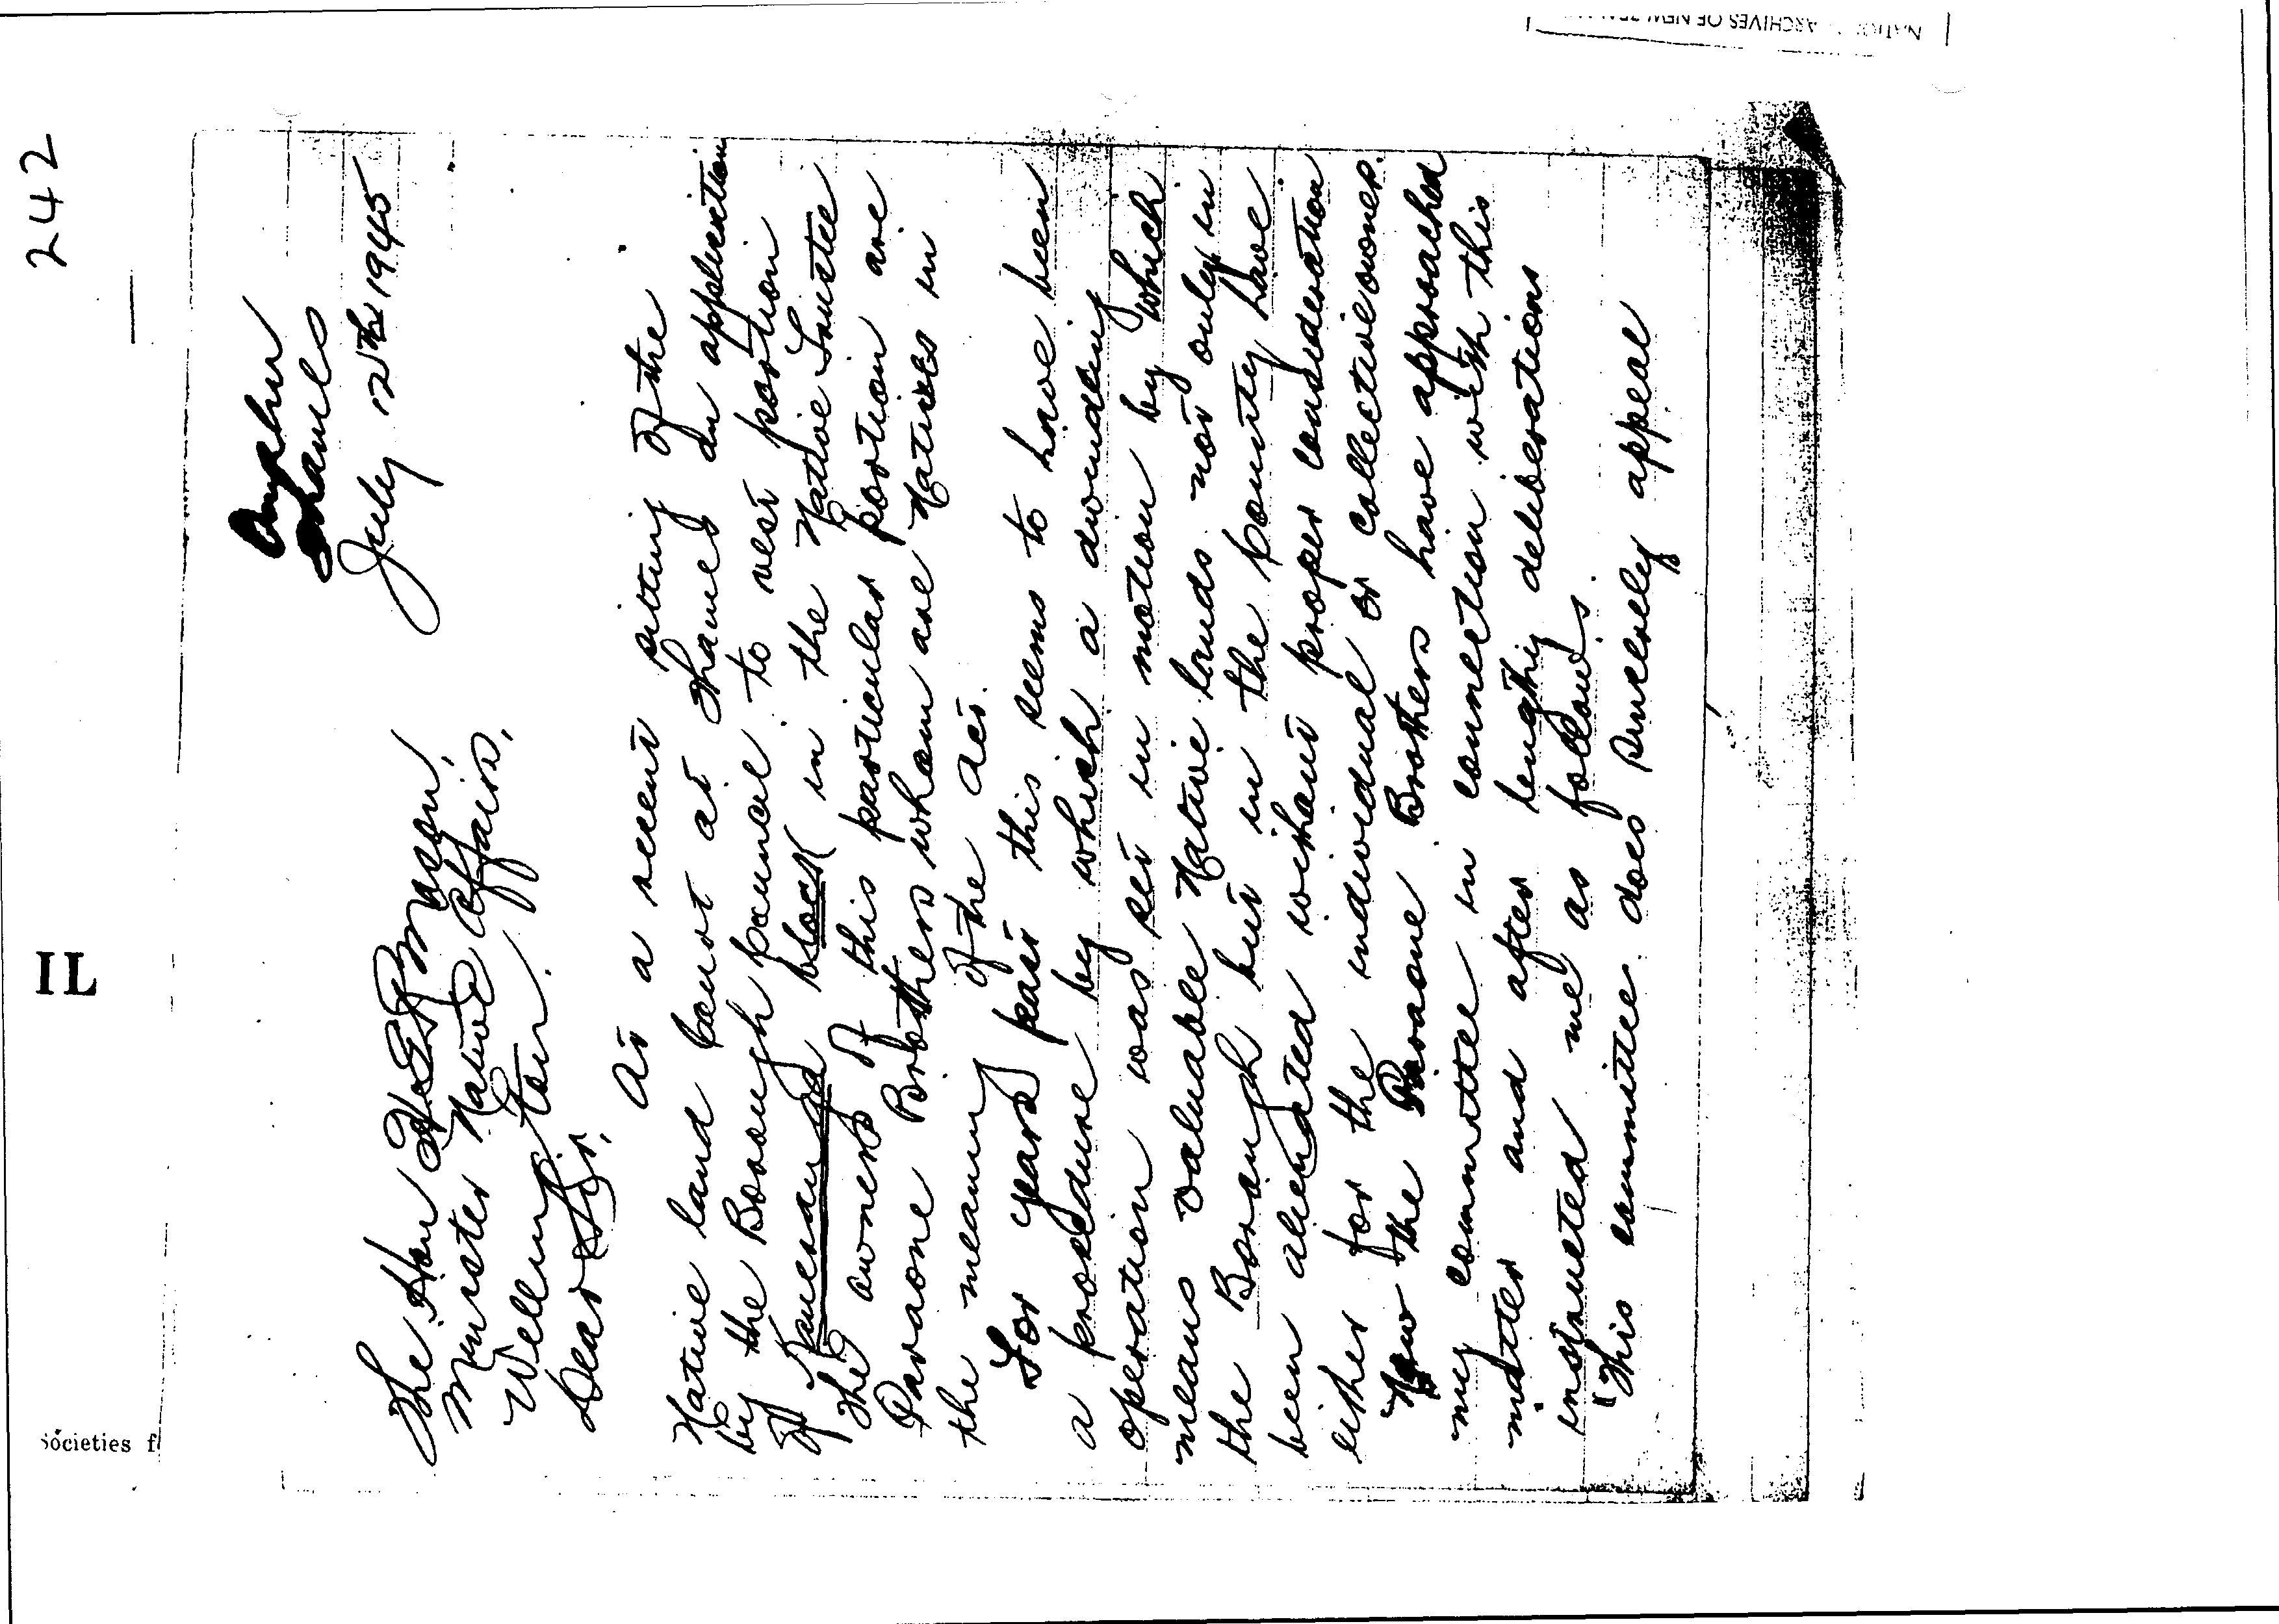 242
Thames
July 12th 1945
The Hon H G R Mason,
Minister Native Affairs,
Wellington.
Dear Sir,
At a recent sitting of the
Native land Court at Thames an application
by the Borough Council to vest portion
of block in the Native Trustee
The owners of this particular portion are
Paraone Brothers whom are Natives in
the meaning of the Act.
For years past this seems to have been
a procedure by which a dwindling
operation was set in motion by which
means valuable Native lands not only in
the Borough but in the County have
been alienated without proper consideration
either for the individual or collective owner.
Now the Paraone Brothers have approached
my committee in connection with this
matter and after lengthy deliberations
instructed me as follows.
"This committee does sincerely appeal
IL
Societies f
ARCHIVES OF NEW